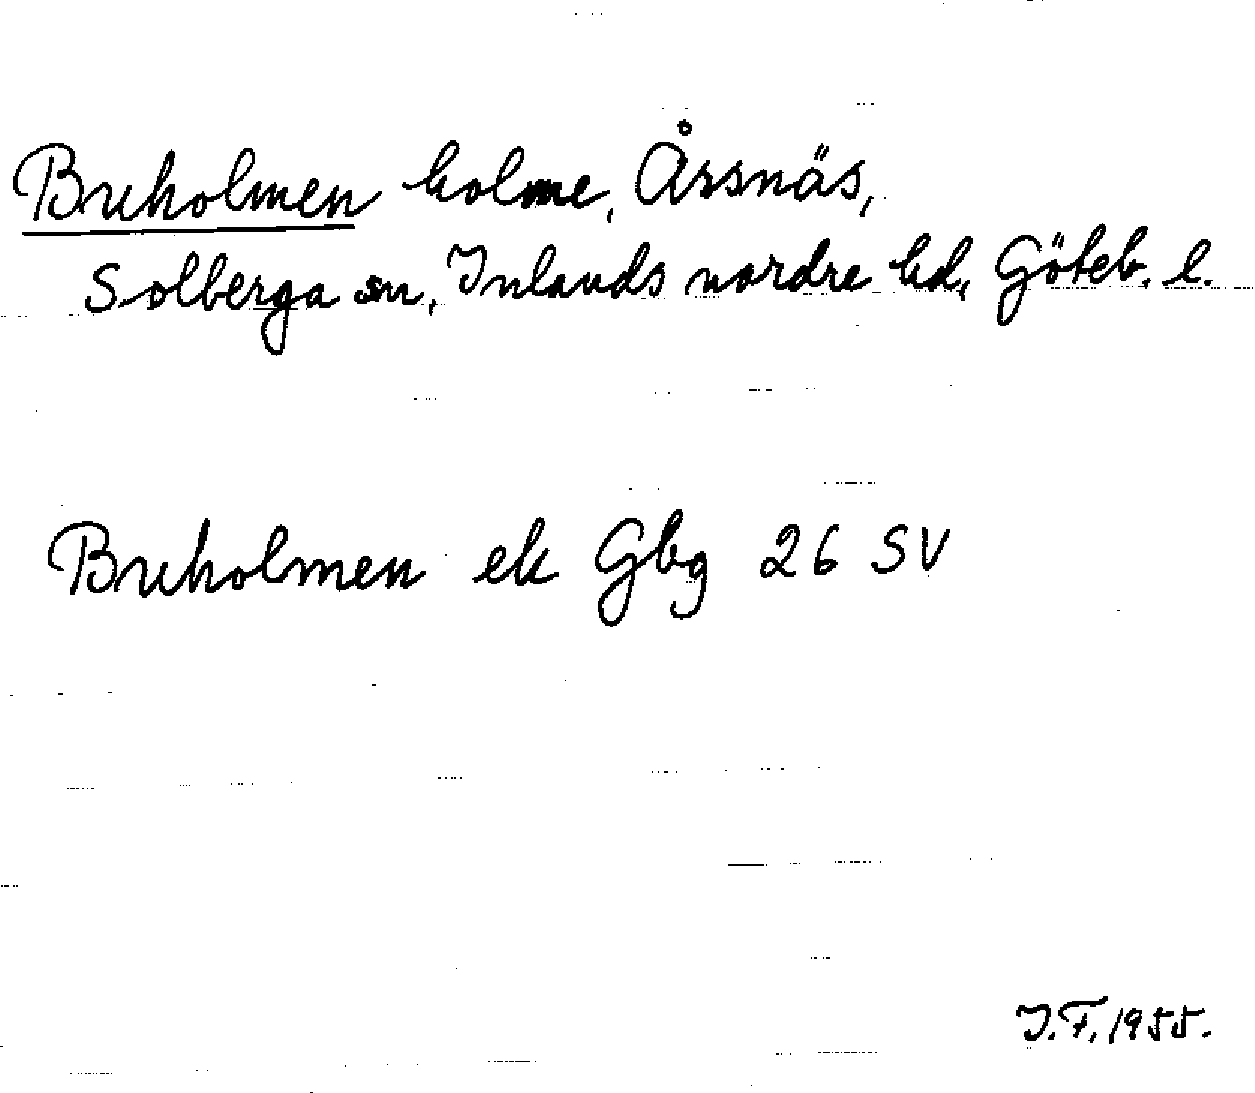 Breholmen holme, Årsnäs,
Solberga sn, Inlands nordre hd, Göteb. l.
Breholmen ek Gbg 26 SV
J.F. 1955.